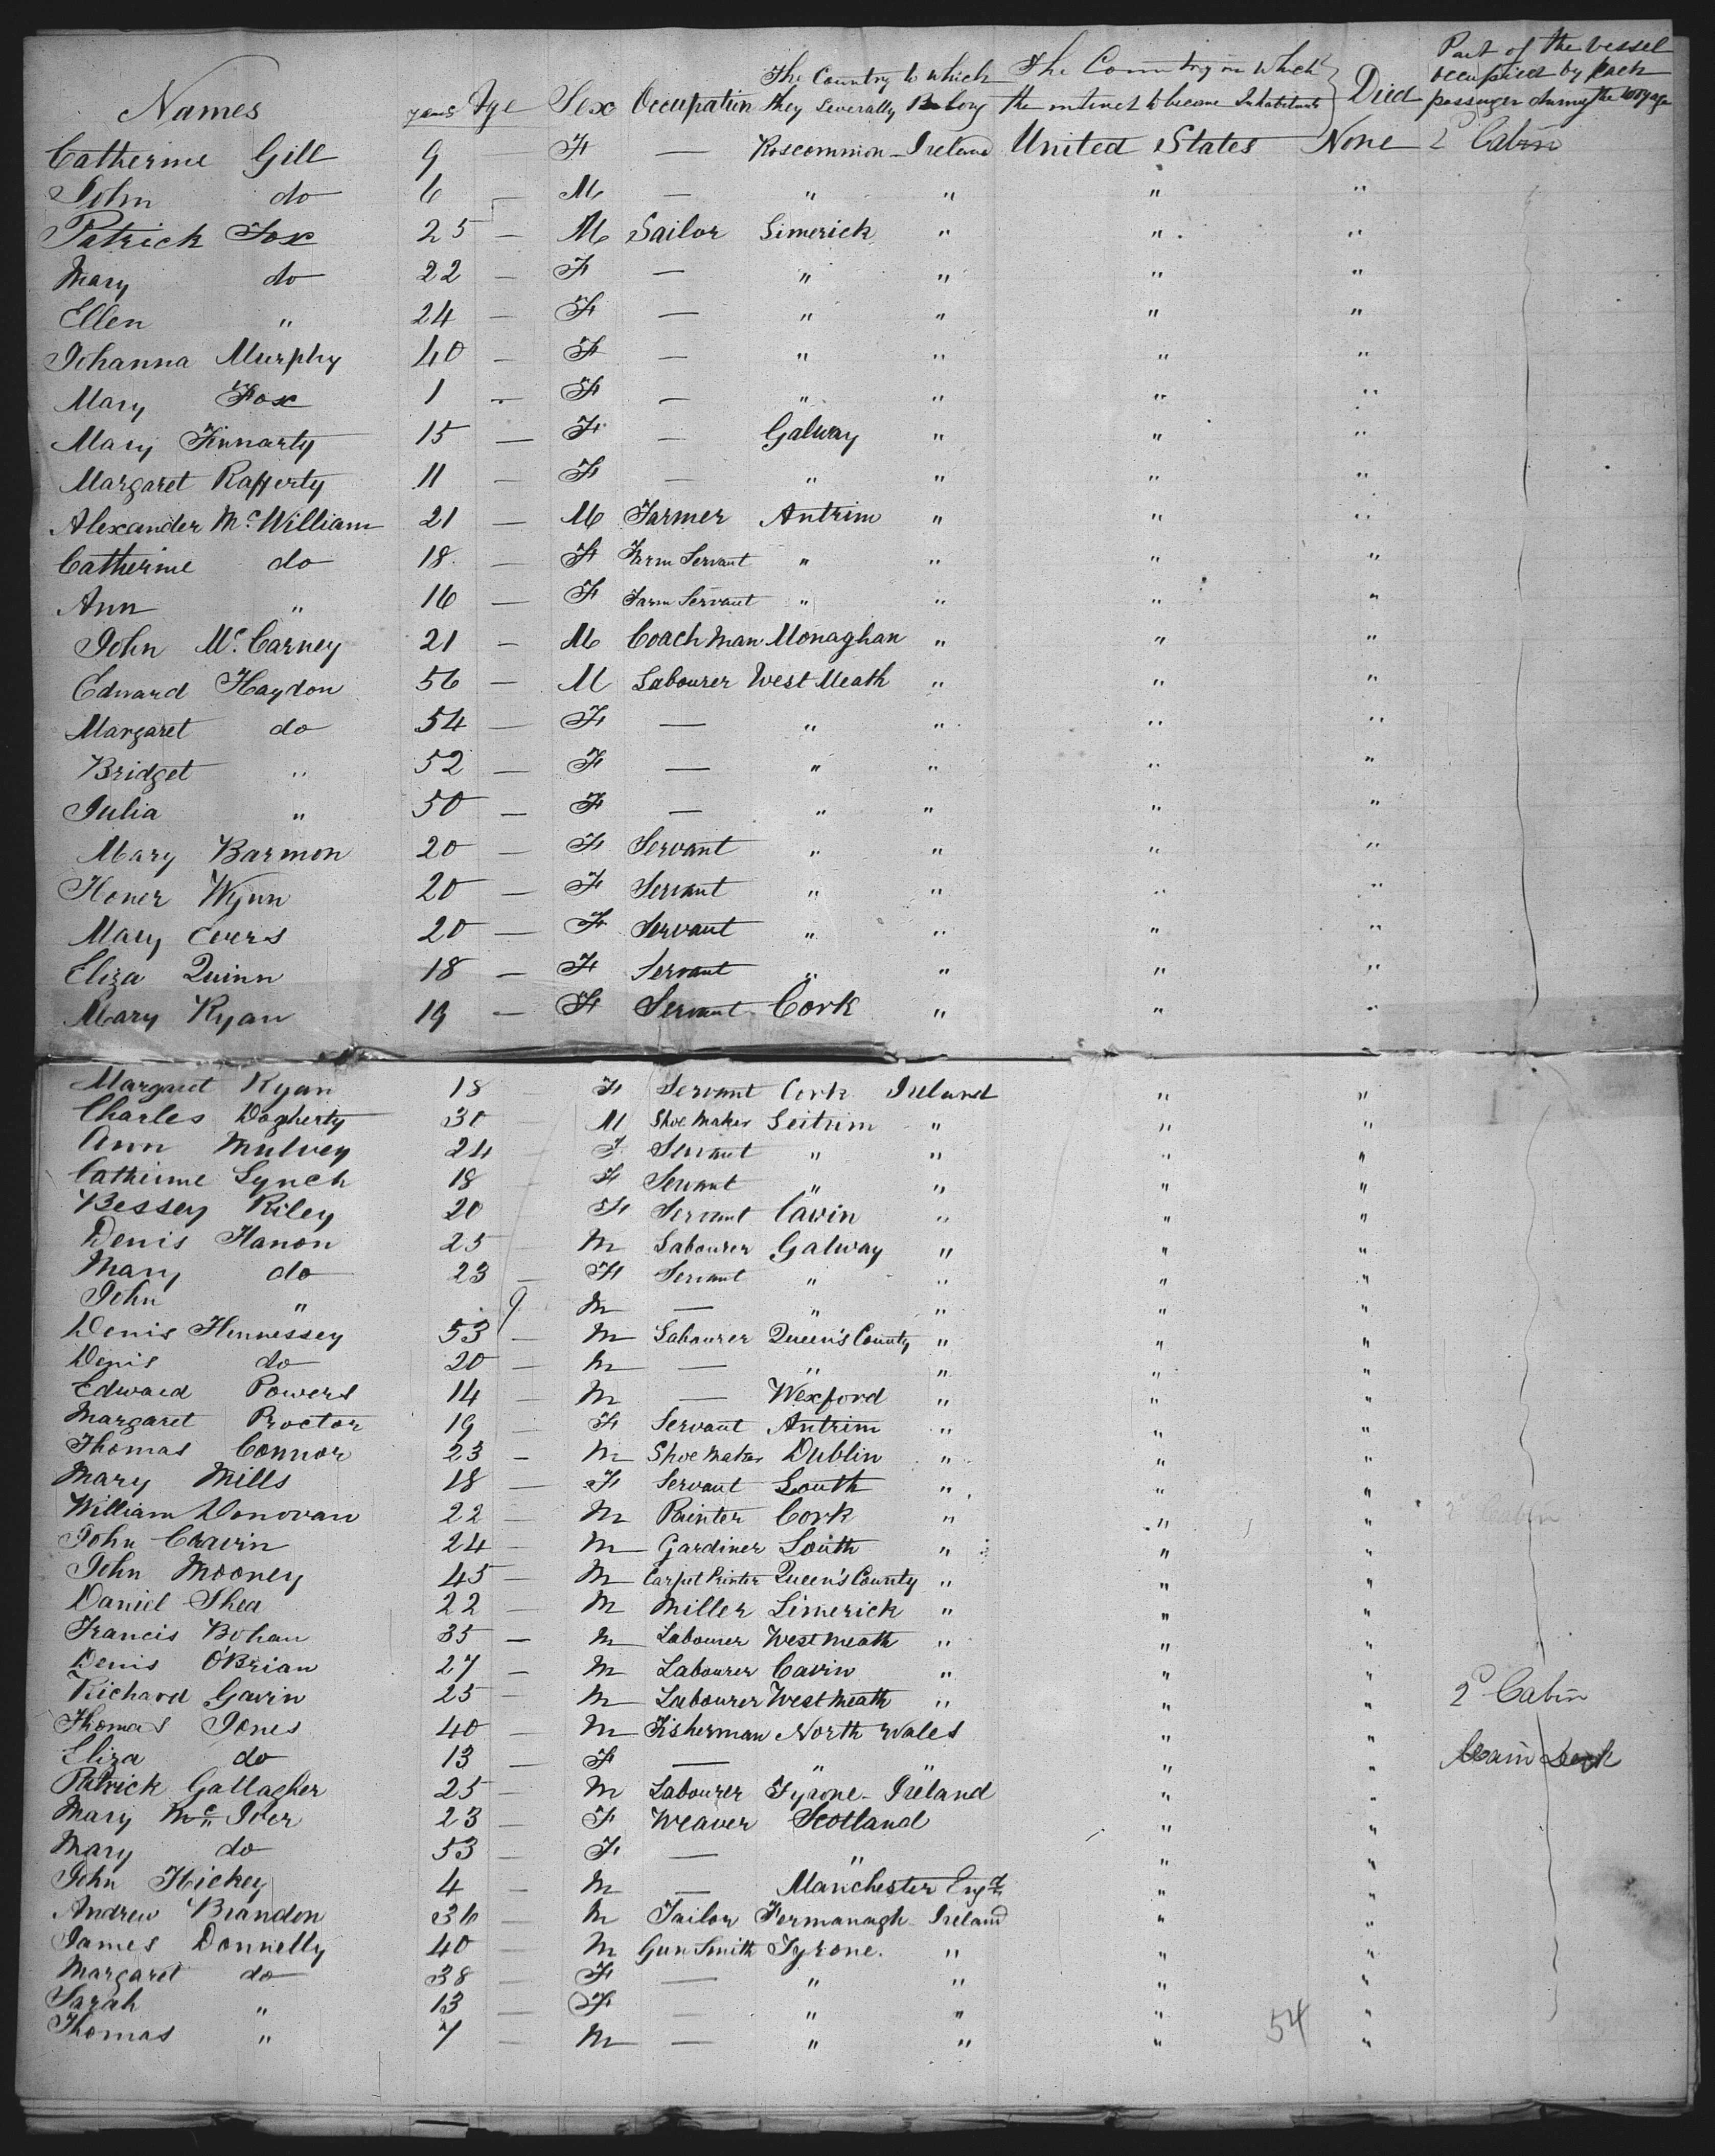 Names years Age Sex Occupation The Country to which they Severally Belong The Country in which the intend to become Inhabitants Died Part of the vessel occupied by each passenger during the voyage
Catherine Gill 9 F — Roscommon - Ireland United States None 2d Cabin
John do 6 — M — " " " "
Patrick Fox 25 — M Sailor Limerick " " "
Mary do 22 — F — " " " "
Ellen " 24 — F — " " " "
Johanna Murphy 40 — F — " " " "
Mary Fox 1 — F — " " " "
Mary Finnarty 15 — F — Galway " " "
Margaret Rafferty 11 — F — " " " "
Alexander Mc William 21 — M Farmer Antrim " " "
Catherine do 18 — F Farm Servant " " " "
Ann " 16 — F Farm Servant " " " "
John Mc Carney 21 — M Coach Man Monaghan " " "
Edward Haydon 56 — M Labourer West Meath " " "
Margaret do 54 — F — " " " "
Bridget " 52 — F — " " " "
Julia " 50 — F — " " " "
Mary Barmon 20 — F Servant " " " "
Honer Wynn 20 — F Servant " " " "
Mary Evers 20 — F Servant " " " "
Eliza Quinn 18 — F Servant " " " "
Mary Ryan 19 — F Servant Cork " " "
Margaret Ryan 18 F Servant Cork Ireland " "
Charles Dogherty 30 M Shoe Maker Leitrim " " "
Ann Mulvey 24 F Servant " " " "
Catherine Lynch 18 F Servant " " " "
Bessey Riley 20 F Servant Cavin " " "
Denis Hanon 25 M Labourer Galway " " "
Mary do 23 — F Servant " " " "
John " 9 M — " " " "
Denis Hennessey 53 — M Labourer Queen's County " " "
Denis do 20 — M — " " " "
Edward Powers 14 — M — Wexford " " "
Margaret Proctor 19 — F Servant Antrim " " "
Thomas Connor 23 — M Shoe Maker Dublin " " "
Mary Mills 18 — F Servant Louth " " "
William Donovan 22 — M Painter Cork " " " 2d Cabin
John Cravin 24 — M Gardiner Louth " " "
John Mooney 45 — M Carpet Printer Queen's County " " "
Daniel Shea 22 — M Miller Limerick " " "
Francis Bohan 35 — M Labourer West Meath " " "
Denis O'Brian 27 — M Labourer Cavin " " "
Richard Gavin 25 — M Labourer West Meath " " " 2d Cabin
Thomas Jones 40 — M Fisherman North Wales " "
Eliza do 13 — F — " " " " Main Deck
Patrick Gallagher 25 — M Labourer Tyrone - Ireland " "
Mary Mc Iver 23 — F Weaver Scotland " "
Mary do 53 — F — " " "
John Hickey 4 — M — Manchester Engd " "
Andrew Brandon 36 M Tailor Fermanagh Ireland " "
James Donnelly 40 — M Gun Smith Tyrone. " " "
Margaret do 38 — F — " " " "
Sarah " 13 — F — " " " "
Thomas " 7 — M — " " " "
54